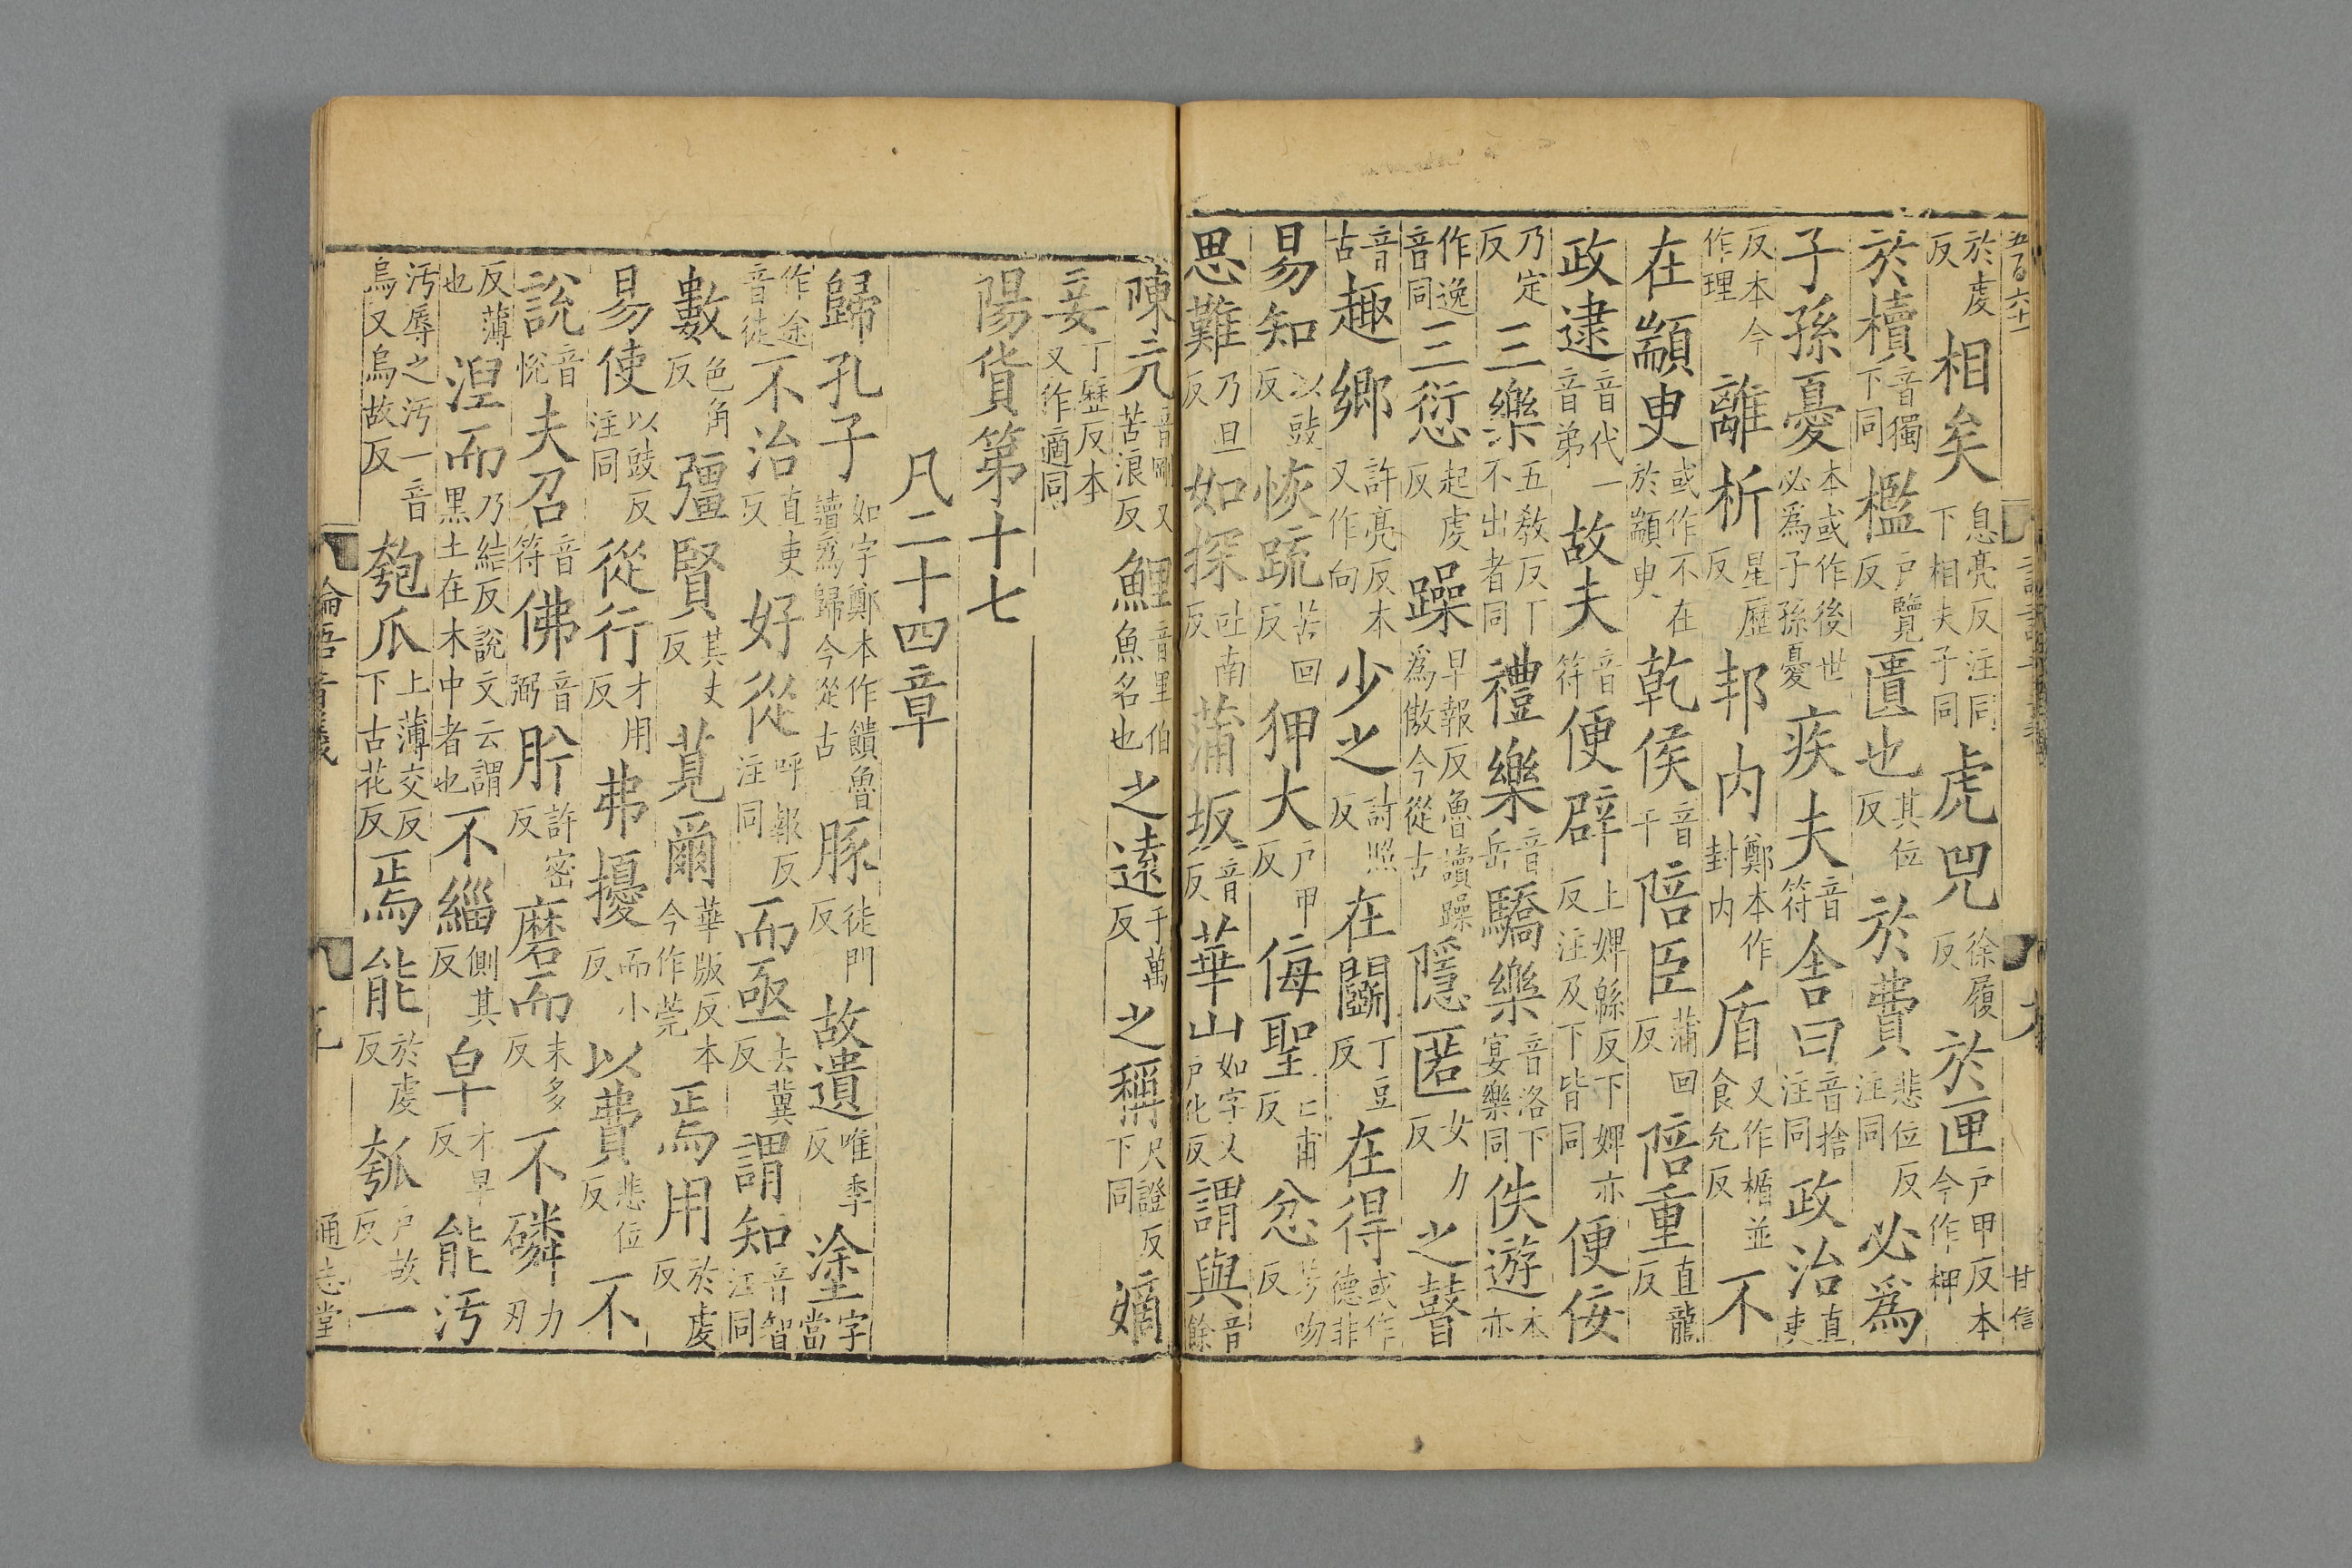 於䖍反相矣息亮反注同下相夫子同虎兕徐履反於匣戶甲反本今作柙
於櫝音獨下同檻戶覽反匱也其位反於費悲位反注同必爲
子孫憂本或作後世必爲子孫憂疾夫音符舍曰音捨注同政治直吏
反本今作理離析星歷反邦內鄭本作封內盾又作楯並食允反不
在顓臾或作不在於顓臾乾侯音干陪臣蒲回反陪重直龍反
政逮音代一音弟故夫音符便辟上婢緜反下婢亦反注及下皆同便佞
乃定反三樂五敎反下不出者同禮樂音岳驕樂音洛下宴樂同佚遊本亦
作逸音同三愆起䖍反躁早報反魯讀躁爲傲今從古隱匿女力反之瞽
音古趣鄉許亮反本又作向少之詩照反在鬭丁豆反在得或作德非
易知以豉反恢疏苦回反狎大戶甲反侮聖亡甫反忿芳吻反
思難乃旦反如探吐南反蒲坂音反華山如字又戶化反謂與音餘
陳亢音剛又苦浪反鯉音里伯魚名也之遠于萬反之稱尺證反下同嫡
妾丁歷反本又作適同
陽貨第十七
凡二十四章
歸孔子如字鄭本作饋魯讀爲歸今從古豚徒門反故遺唯季反塗字當
作途音徒不治直吏反好從呼報反注同而亟去冀反謂知音智注同
數色角反彊賢其丈反莧爾華版反本今作莞焉用於䖍反
易使以豉反注同從行才用反弗擾而小反以費悲位反不
說音悅夫召音符佛音弼肸許密反磨而末多反不磷力刃
反薄也涅而乃結反說文云謂黑土在木中者也不緇側其反皁才早反能汚
汚辱之汚一音烏又烏故反匏瓜上薄交反下古花反焉能於䖍反瓠戶故反一
論語音義
通志堂
甘信